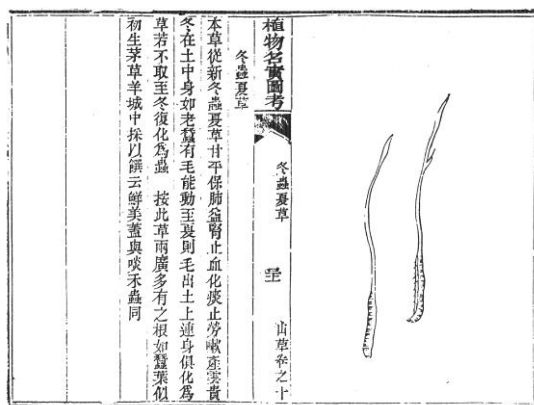 植物名實圖考
冬蟲夏草
山草卷之十
冬蟲夏草
本草從新冬蟲夏草甘平保肺益腎止血化痰止勞嗽產雲貴
冬在土中身如老蠶有毛能動至夏則毛出土上連身俱化爲
草若不取至冬復化爲蟲　按此草兩廣多有之根如蠶葉似
初生茅草羊城中採以饌云鮮美蓋與啖禾蟲同